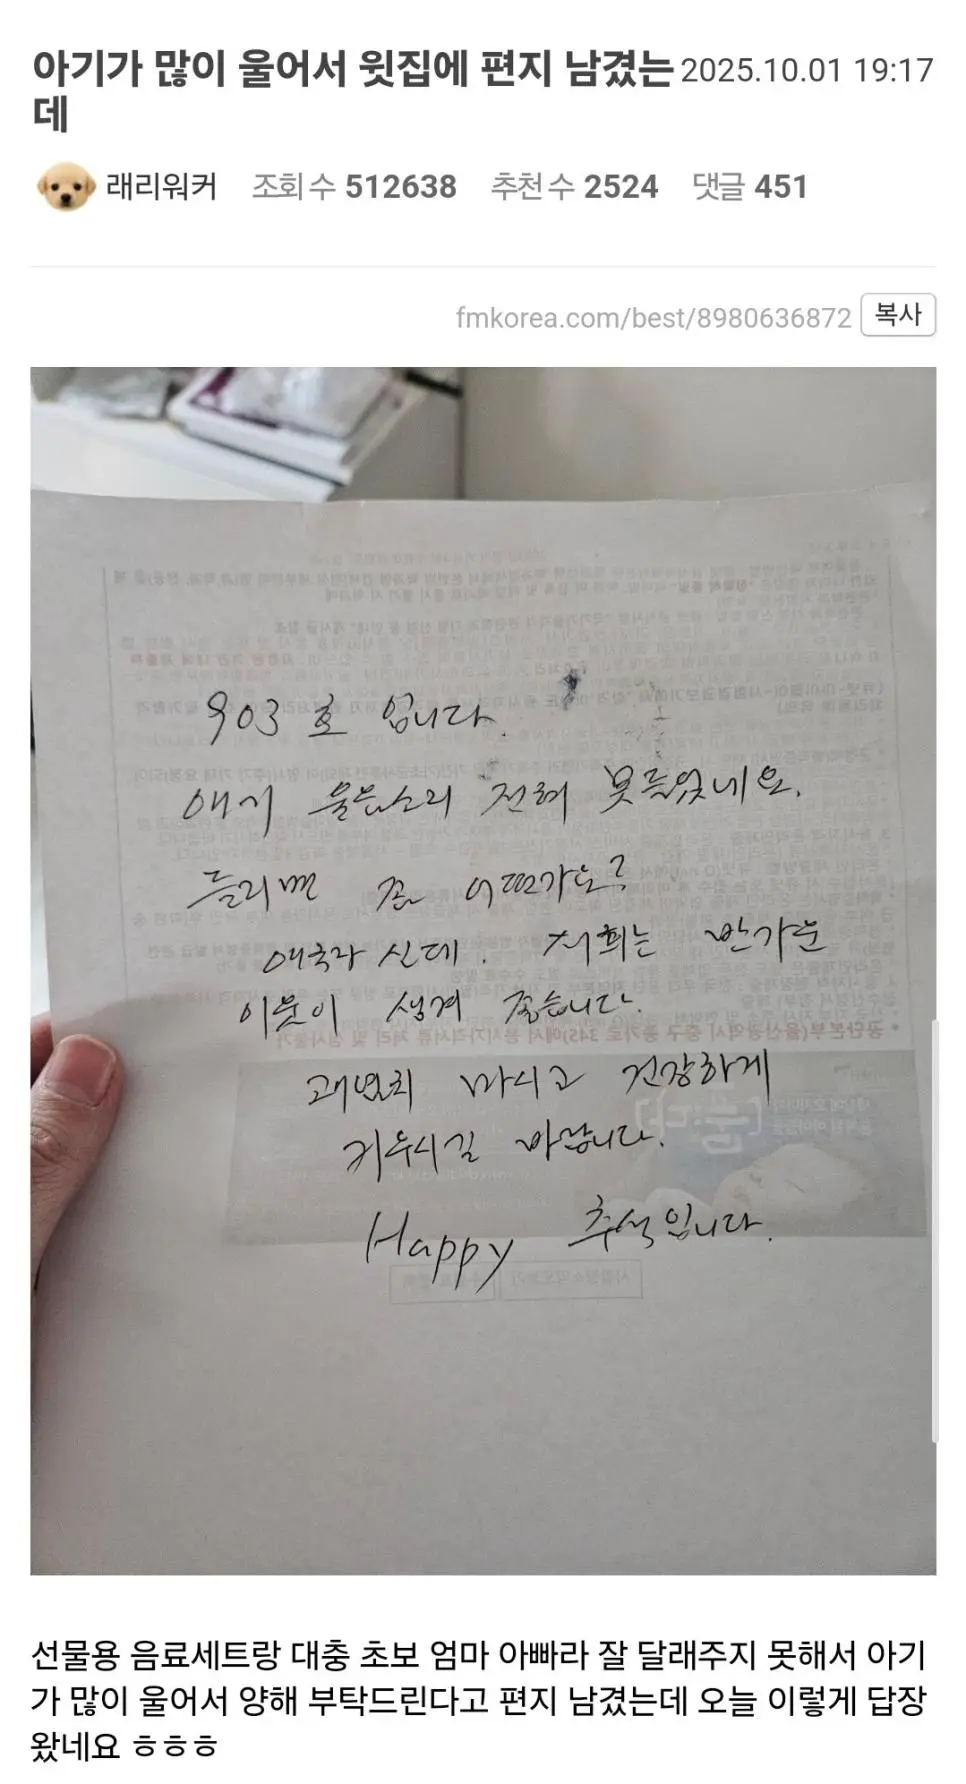 아기가 많이 울어서 윗집에 편지 남겼는
데
2025.10.01 19:17
래리워커 조회 수 512638 추천 수 2524 댓글 451
fmkorea.com/best/8980636872 복사
903 호 입니다.
애기 울음소리 전혀 못들었네요.
들리면 좀 어떤가요?
애국자 신데. 저희는 반가운
이웃이 생겨 좋습니다.
괘념치 마시고 건강하게
키우시길 바랍니다.
Happy 추석입니다.
선물용 음료세트랑 대충 초보 엄마 아빠라 잘 달래주지 못해서 아기
가 많이 울어서 양해 부탁드린다고 편지 남겼는데 오늘 이렇게 답장
왔네요 ㅎㅎㅎ